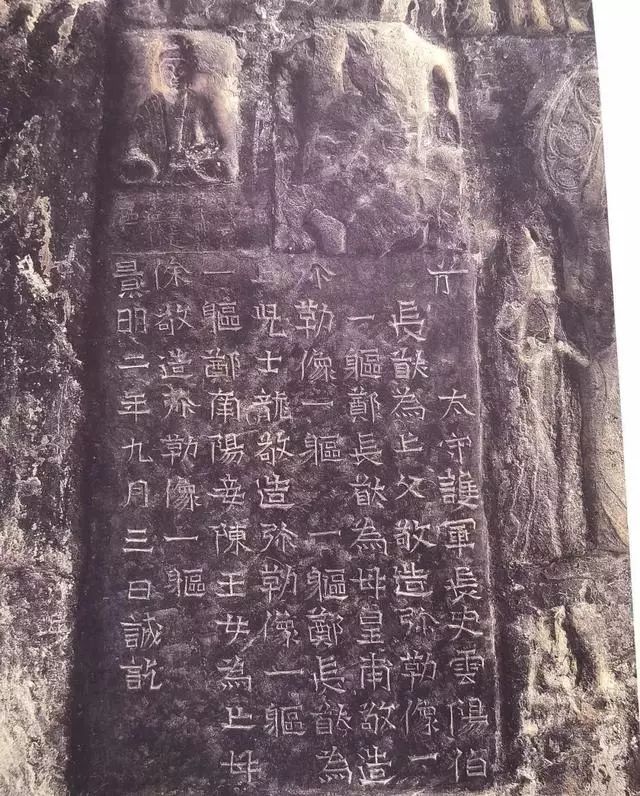 太守護軍長史雲陽伯
長猷為亡父敬造弥勒像一
一軀鄭長猷為母皇甫敬造
弥勒像一軀 一軀鄭長猷為
亡児士龍敬造弥勒像一軀
一軀鄭南陽妾陳王女為亡母
徐敬造弥勒像一軀
景明二年九月三日誠訖